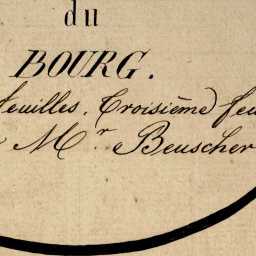 du
BOURG.
feuilles. Troisième feu
Mr Beuscher